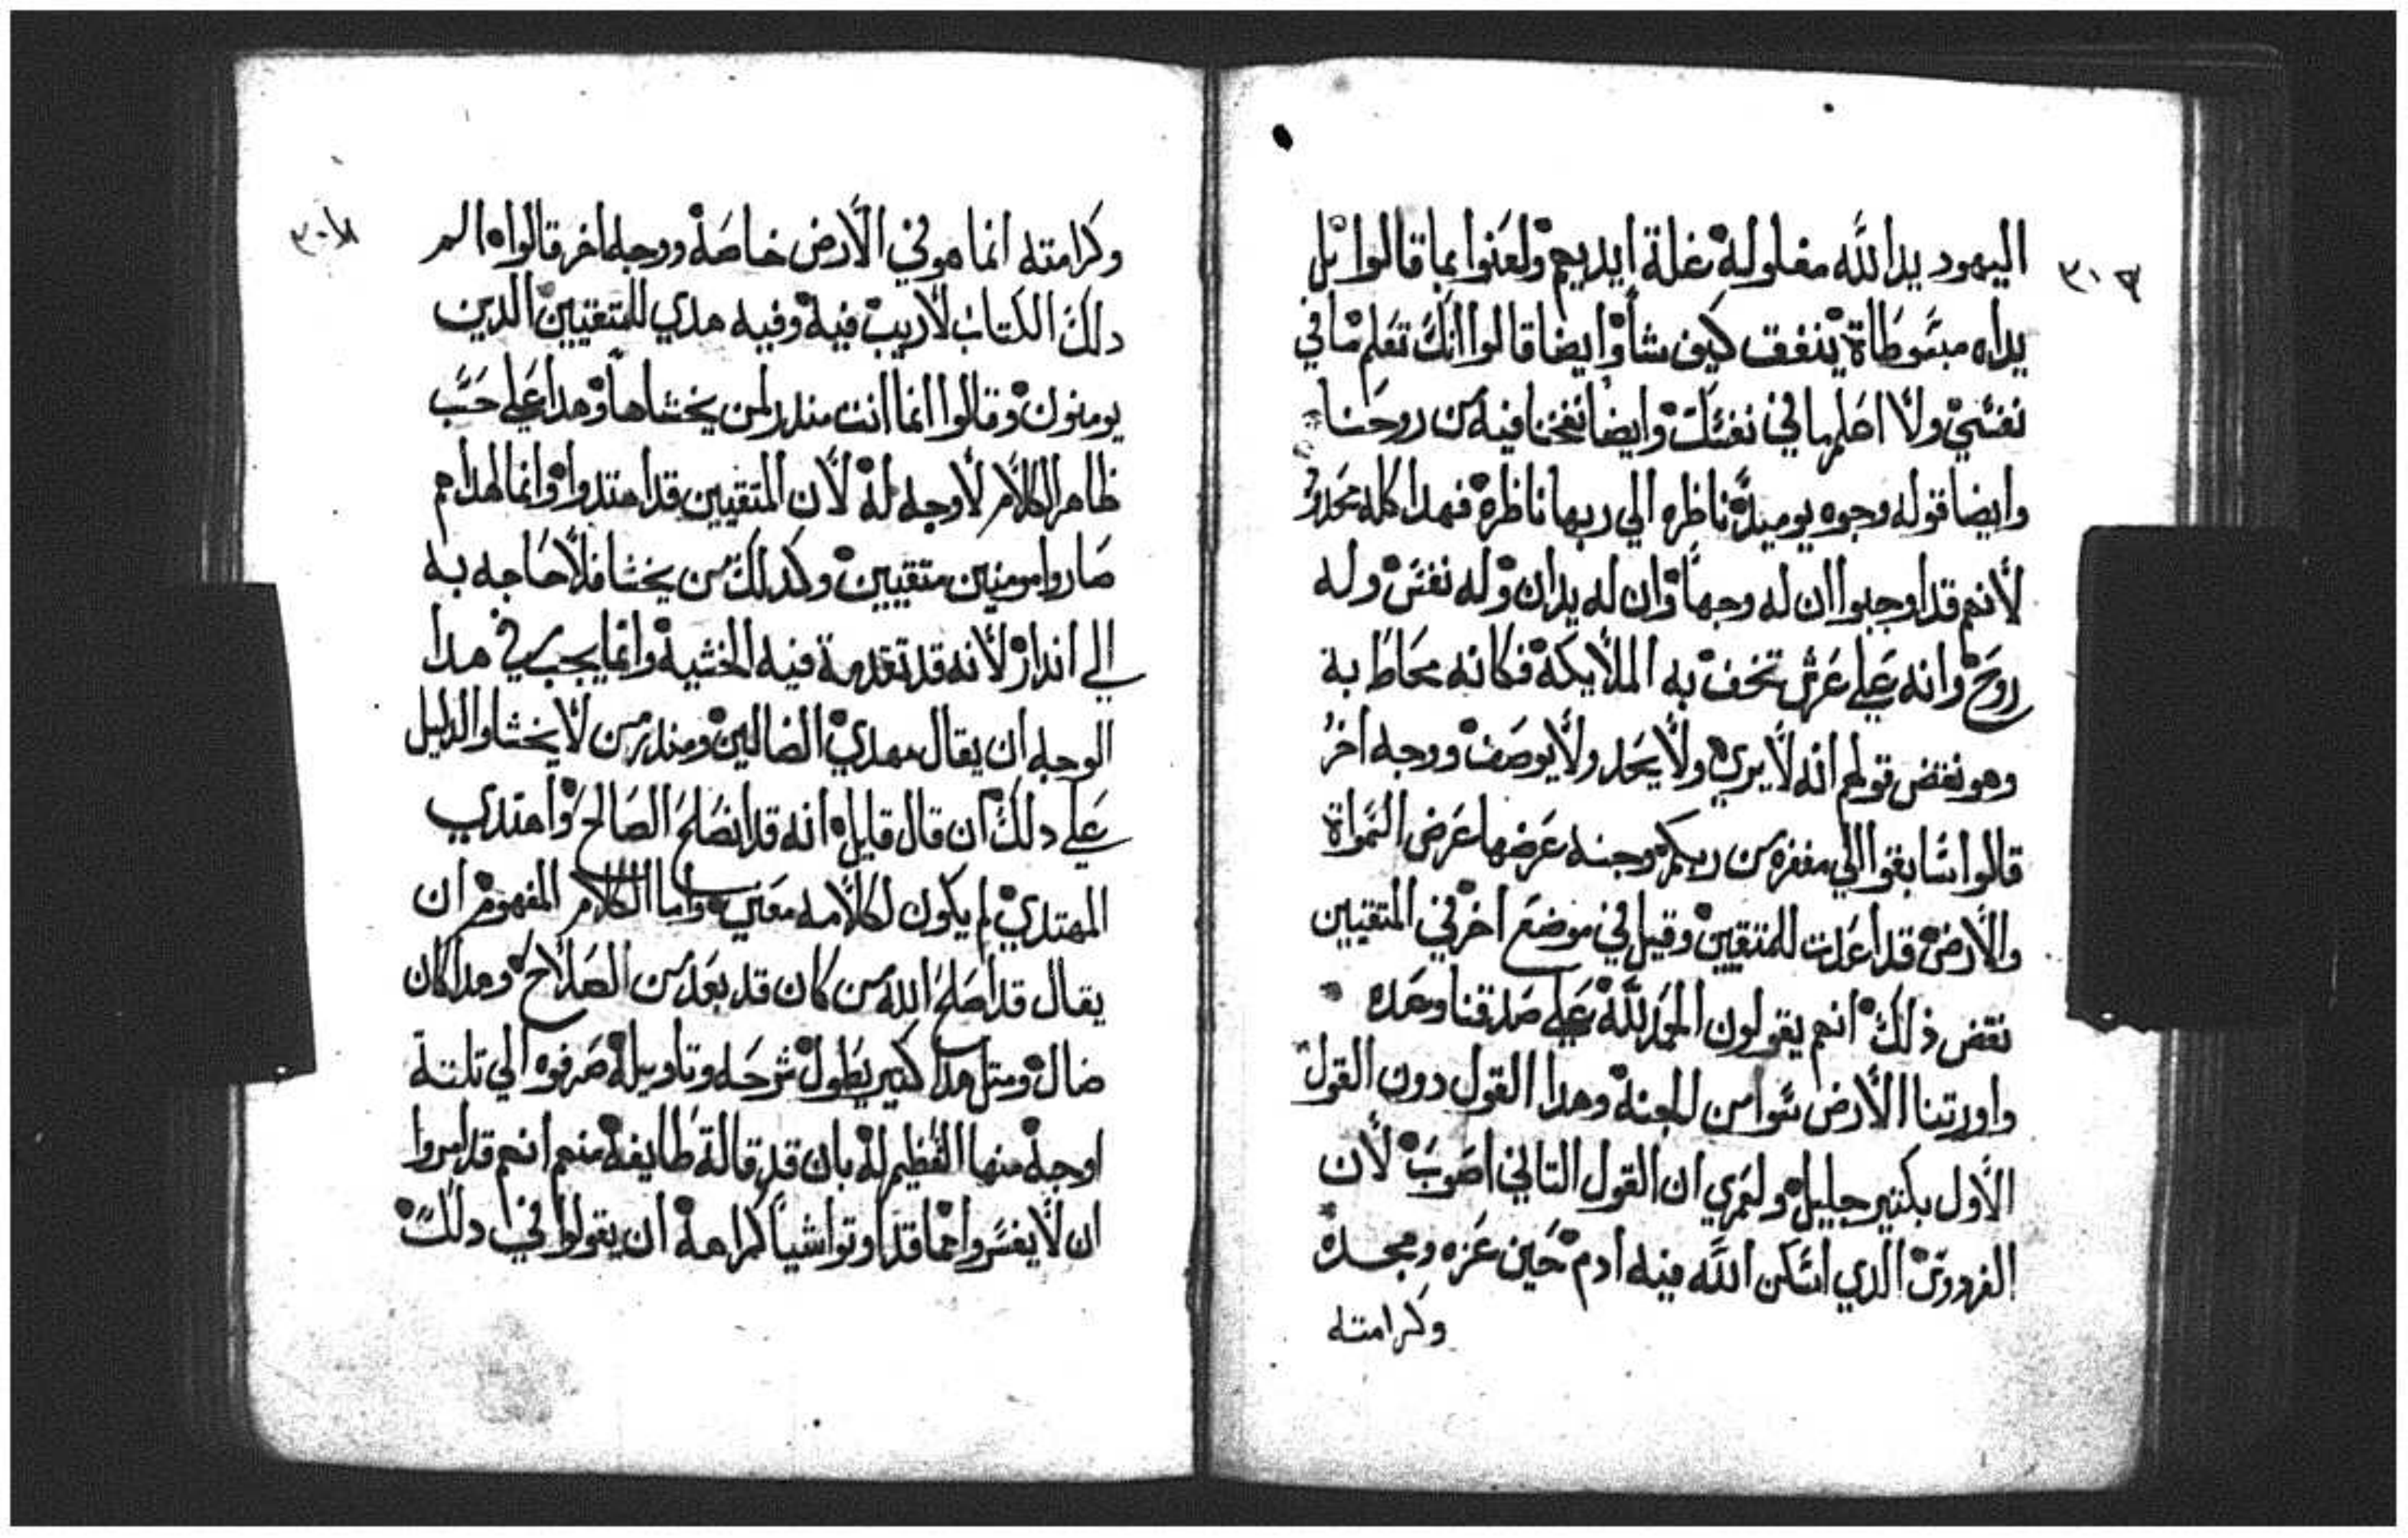 اليهود يد الله مغلوله غلة ايديهم ولعنوا بما قالوا بل
يداه مبسوطاة ينفق كيف شا وايضا قالوا انك تعلم ما في
نفسي ولا اعلم ما في نفسك وايضا نفخنا فيه من روحنا
وايضا قوله وجوه يوميذ ناظره الي ربها ناظرة فهدا كله محدود
لانهم قد اوجبوا ان له وجها وان له يدان وله نفس وله
روح وانه علي عرش تخف به الملايكة فكانه محاط به
وهو نقض قولهم انه لا يري ولا يحد ولا يوصف ووجه اخر
قالوا سابقوا الي مغفره من ربكم وجنه عرضها عرض السمواة
والارض قد اعدت للمتقيين وقيل في موضع اخر في المتقيين
نقض ذلك انهم يقولون الحمد لله علي صدقنا وعده
واورتنا الارض نتوا من الجنة وهدا القول دون القول
الاول بكتير جليل ولعمري ان القول التاني اصوب لان
الفردوس الدي اسكن الله فيه ادم حين عزه ومجده
وكرامته
وكرامته انما هو في الارض خاصة ووجه اخر قالوا الم
دلك الكتاب لا ريب فيه وفيه هدي للمتقيين الدين
يومنون وقالوا انما انت مندر لمن يخشاها وهدا علي حسب
ظاهر الكلام لا وجه له لان المتقيين قد اهتدوا وانما لهدا هم
صاروا مومنين متقيين وكدلك من يخشا فلا حاجه به
الي اندار لانه قد تقدمة فيه الخشية وانما يجب في هدا
الوجه ان يقال مهدي الضالين ومندر من لا يخشا والدليل
علي دلك ان قال قايل انه قد انصلح الصالح واهتدي
المهتدي لم يكون لكلامه معني واما الكلام المفهوم ان
يقال قد اصلح الله من كان قد بعد من الصلاح وهدا كان
ضال ومتل هدا كتير يطول شرحه وتاويله صرفوه الي تلتة
اوجه منها التفظيم له بان قد قالة طايفة منهم انهم قد امروا
ان لا يفسروا انما قد اوتوا شيا كراهة ان يقولوا في دلك